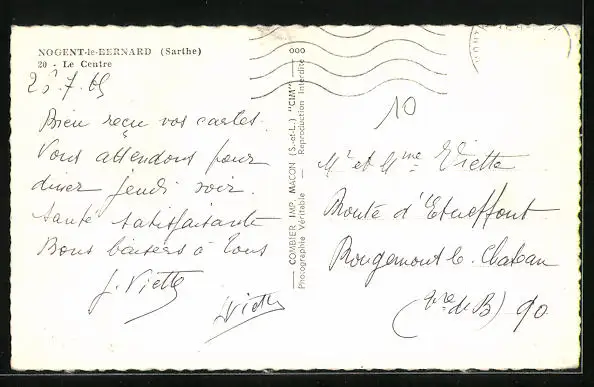 NOGENT-le-BERNARD (Sarthe)
20 - Le Centre
25.7.65
Bien reçu vos cartes.
Vous attendons pour
diner jeudi soir.
Santé satisfaisante
Bons baisers à tous
J. Viette
Viette
COMBIER IMP. MACON (S.-et-L.) "CIM"
Photographie Véritable - Reproduction Interdite
10
Mr et Mme Viette
Route d'Etueffont
Rougemont le Chateau
(Tre de B) 90